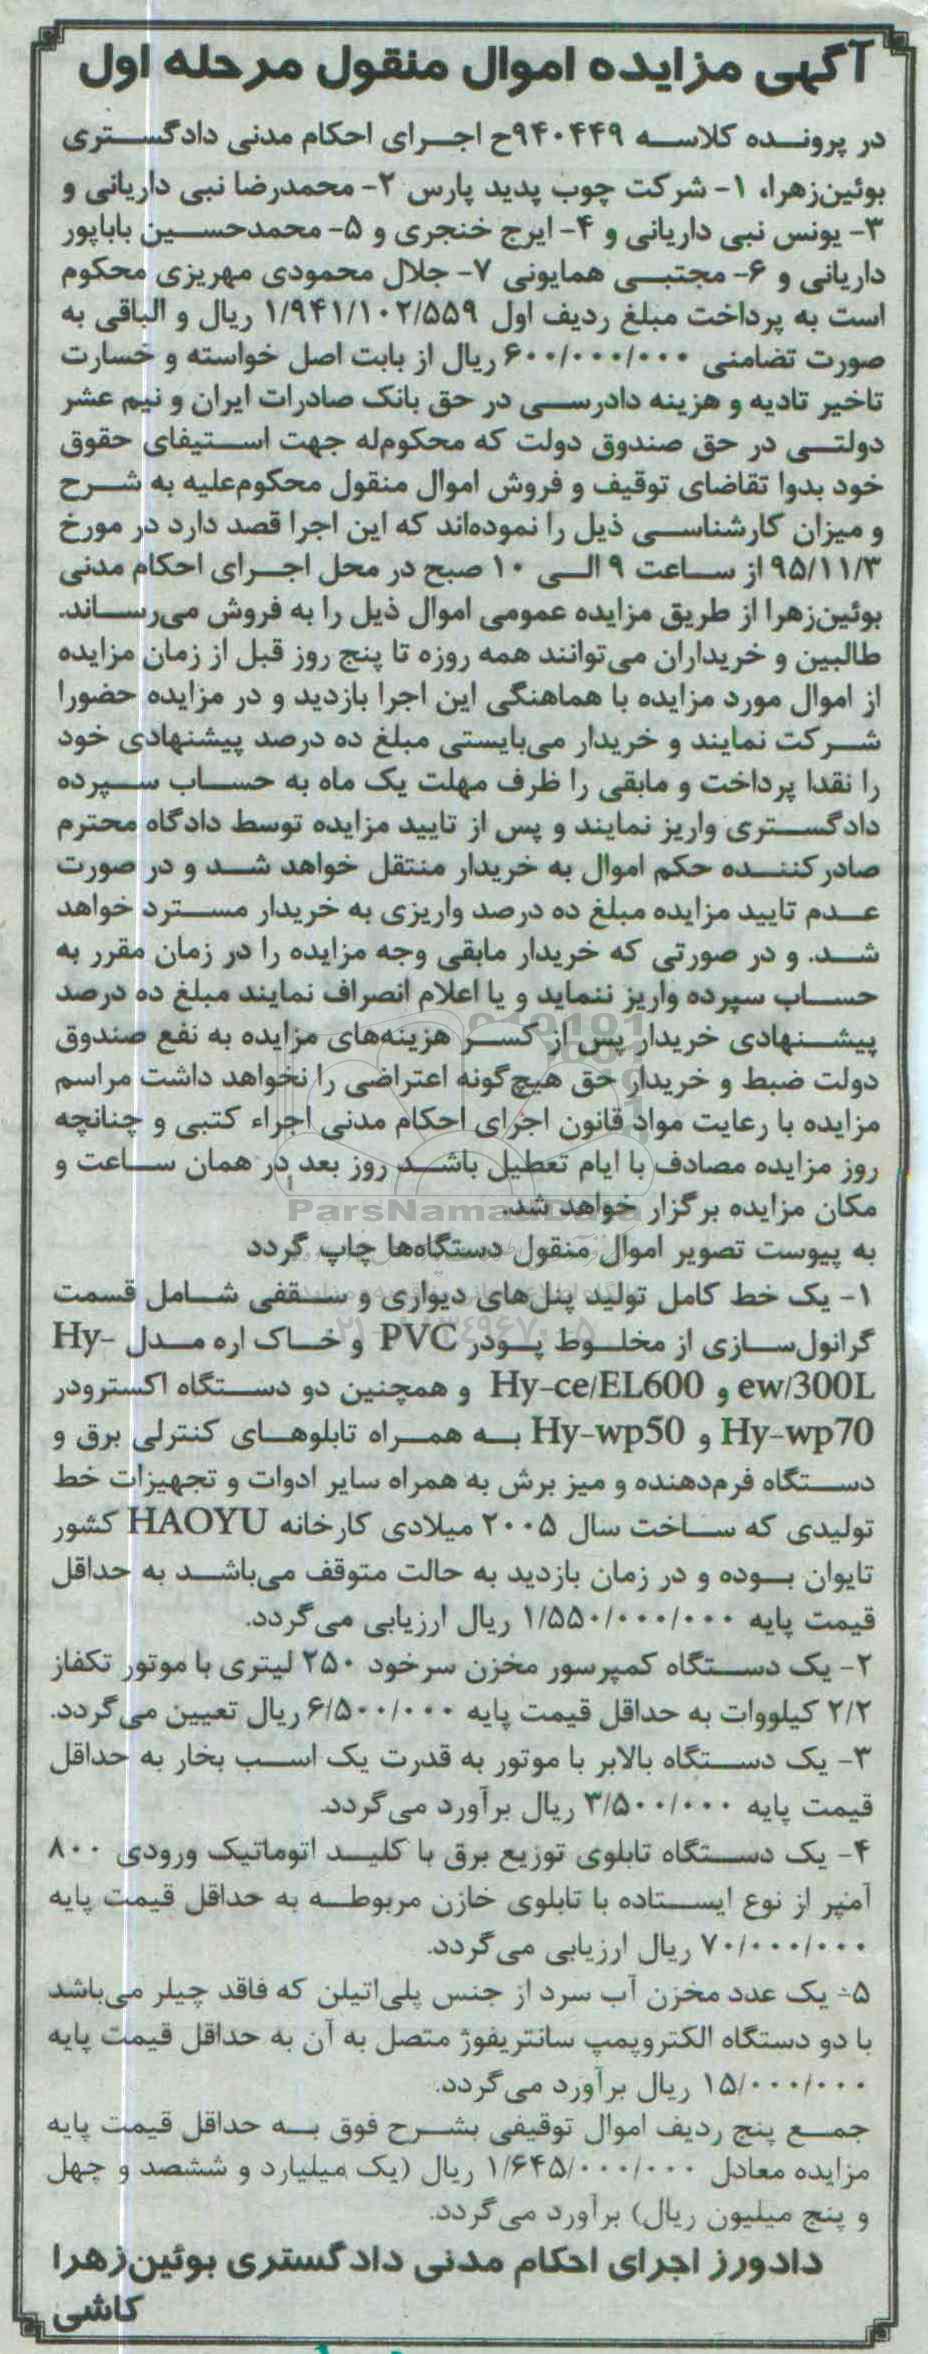 آگهی مزایده اموال منقول مرحله اول
در پرونده کلاسه ۹۴۰۴۴۹ح اجرای احکام مدنی دادگستری
بوئین‌زهرا، ۱- شرکت چوب پدید پارس ۲- محمدرضا نبی داریانی و
۳- یونس نبی داریانی و ۴- ایرج خنجری و ۵- محمدحسین باباپور
داریانی و ۶- مجتبی همایونی ۷- جلال محمودی مهریزی محکوم
است به پرداخت مبلغ ردیف اول ۱/۹۴۱/۱۰۲/۵۵۹ ریال و الباقی به
صورت تضامنی ۶۰۰/۰۰۰/۰۰۰ ریال از بابت اصل خواسته و خسارت
تاخیر تادیه و هزینه دادرسی در حق بانک صادرات ایران و نیم عشر
دولتی در حق صندوق دولت که محکوم‌له جهت استیفای حقوق
خود بدوا تقاضای توقیف و فروش اموال منقول محکوم‌علیه به شرح
و میزان کارشناسی ذیل را نموده‌اند که این اجرا قصد دارد در مورخ
۹۵/۱۱/۳ از ساعت ۹ الی ۱۰ صبح در محل اجرای احکام مدنی
بوئین‌زهرا از طریق مزایده عمومی اموال ذیل را به فروش می‌رساند.
طالبین و خریداران می‌توانند همه روزه تا پنج روز قبل از زمان مزایده
از اموال مورد مزایده با هماهنگی این اجرا بازدید و در مزایده حضورا
شرکت نمایند و خریدار می‌بایستی مبلغ ده درصد پیشنهادی خود
را نقدا پرداخت و مابقی را ظرف مهلت یک ماه به حساب سپرده
دادگستری واریز نمایند و پس از تایید مزایده توسط دادگاه محترم
صادرکننده حکم اموال به خریدار منتقل خواهد شد و در صورت
عدم تایید مزایده مبلغ ده درصد واریزی به خریدار مسترد خواهد
شد. و در صورتی که خریدار مابقی وجه مزایده را در زمان مقرر به
حساب سپرده واریز ننماید و یا اعلام انصراف نمایند مبلغ ده درصد
پیشنهادی خریدار پس از کسر هزینه‌های مزایده به نفع صندوق
دولت ضبط و خریدار حق هیچ‌گونه اعتراضی را نخواهد داشت مراسم
مزایده با رعایت مواد قانون اجرای احکام مدنی اجراء کتبی و چنانچه
روز مزایده مصادف با ایام تعطیل باشد روز بعد در همان ساعت و
مکان مزایده برگزار خواهد شد.
ParsNamadData
به پیوست تصویر اموال منقول دستگاه‌ها چاپ گردد
۱- یک خط کامل تولید پنل‌های دیواری و سقفی شامل قسمت
گرانول‌سازی از مخلوط پودر PVC و خاک اره مدل Hy-
ew/300L و Hy-ce/EL600 و همچنین دو دستگاه اکسترودر
Hy-wp70 و Hy-wp50 به همراه تابلوهای کنترلی برق و
دستگاه فرم‌دهنده و میز برش به همراه سایر ادوات و تجهیزات خط
تولیدی که ساخت سال ۲۰۰۵ میلادی کارخانه HAOYU کشور
تایوان بوده و در زمان بازدید به حالت متوقف می‌باشد به حداقل
قیمت پایه ۱/۵۵۰/۰۰۰/۰۰۰ ریال ارزیابی می‌گردد.
۲- یک دستگاه کمپرسور مخزن سرخود ۲۵۰ لیتری با موتور تکفاز
۲/۲ کیلووات به حداقل قیمت پایه ۶/۵۰۰/۰۰۰ ریال تعیین می‌گردد.
۳- یک دستگاه بالابر با موتور به قدرت یک اسب بخار به حداقل
قیمت پایه ۳/۵۰۰/۰۰۰ ریال برآورد می‌گردد.
۴- یک دستگاه تابلوی توزیع برق با کلید اتوماتیک ورودی ۸۰۰
آمپر از نوع ایستاده با تابلوی خازن مربوطه به حداقل قیمت پایه
۷۰/۰۰۰/۰۰۰ ریال ارزیابی می‌گردد.
۵- یک عدد مخزن آب سرد از جنس پلی‌اتیلن که فاقد چیلر می‌باشد
با دو دستگاه الکتروپمپ سانتریفوژ متصل به آن به حداقل قیمت پایه
۱۵/۰۰۰/۰۰۰ ریال برآورد می‌گردد.
جمع پنج ردیف اموال توقیفی بشرح فوق به حداقل قیمت پایه
مزایده معادل ۱/۶۴۵/۰۰۰/۰۰۰ ریال (یک میلیارد و ششصد و چهل
و پنج میلیون ریال) برآورد می‌گردد.
دادورز اجرای احکام مدنی دادگستری بوئین‌زهرا
کاشی